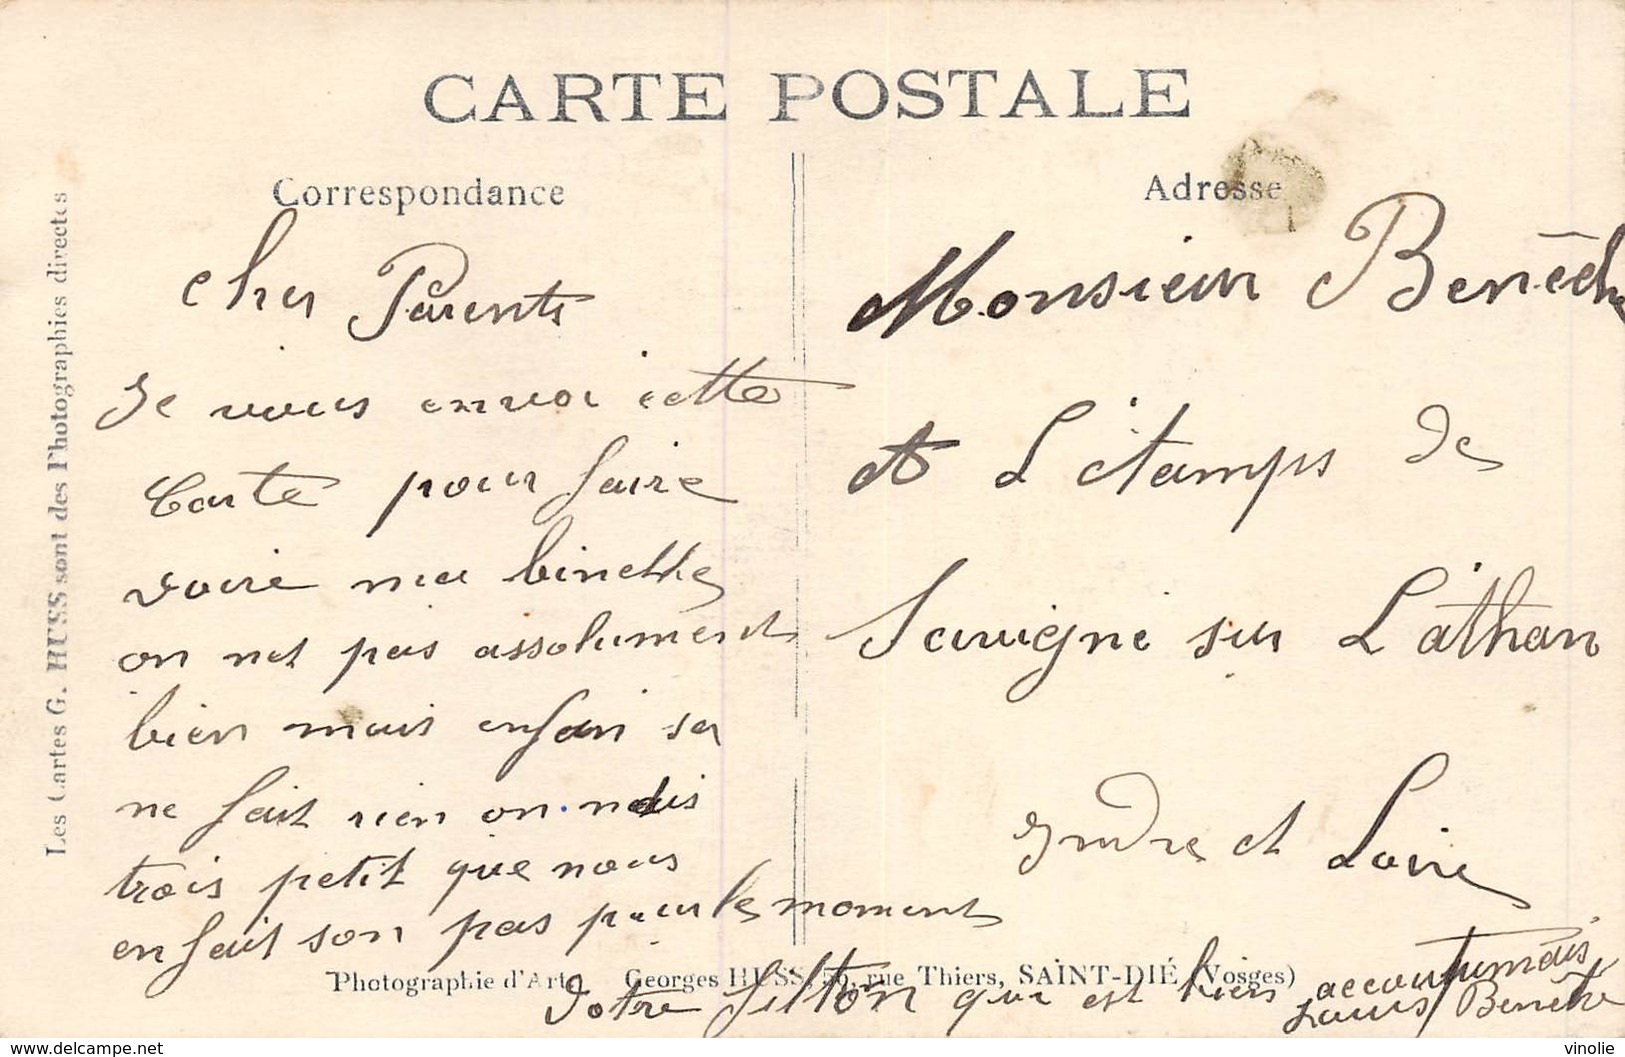 CARTE POSTALE
Correspondance
Adresse
Les Cartes G. HUSS sont des Photographies directes
Cher Parents
Je vous envoi cette
Carte pour faire
voire ma binette
on net pas assolument
bien mais enfain sa
ne fait rien on
trois petit que nous
en fait son pas pour le moment
Votre fiston qui est bien accoutumais
Louis Benêch
Monsieur Benêch
et L'étamps de
Savigne sur Lathan
yndre et Loire
Photographie d'Art Georges HUSS, 56, rue Thiers, SAINT-DIÉ (Vosges)
www.delcampe.net
vinolie